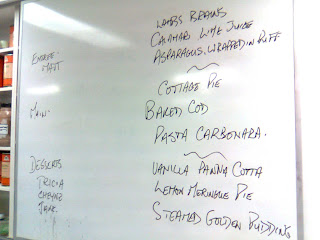 LAMBS BRAINS
CALAMARI LIME JUICE
ASPARAGUS. WRAPPED IN PUFF
ENTREE.
MATT
COTTAGE PIE
MAIN.
BAKED COD
PASTA CARBONARA.
DESSERTS
TRICIA
VANILLA PANNA COTTA
LEMON MERINGUE PIE
STEAMED GOLDEN PUDDING